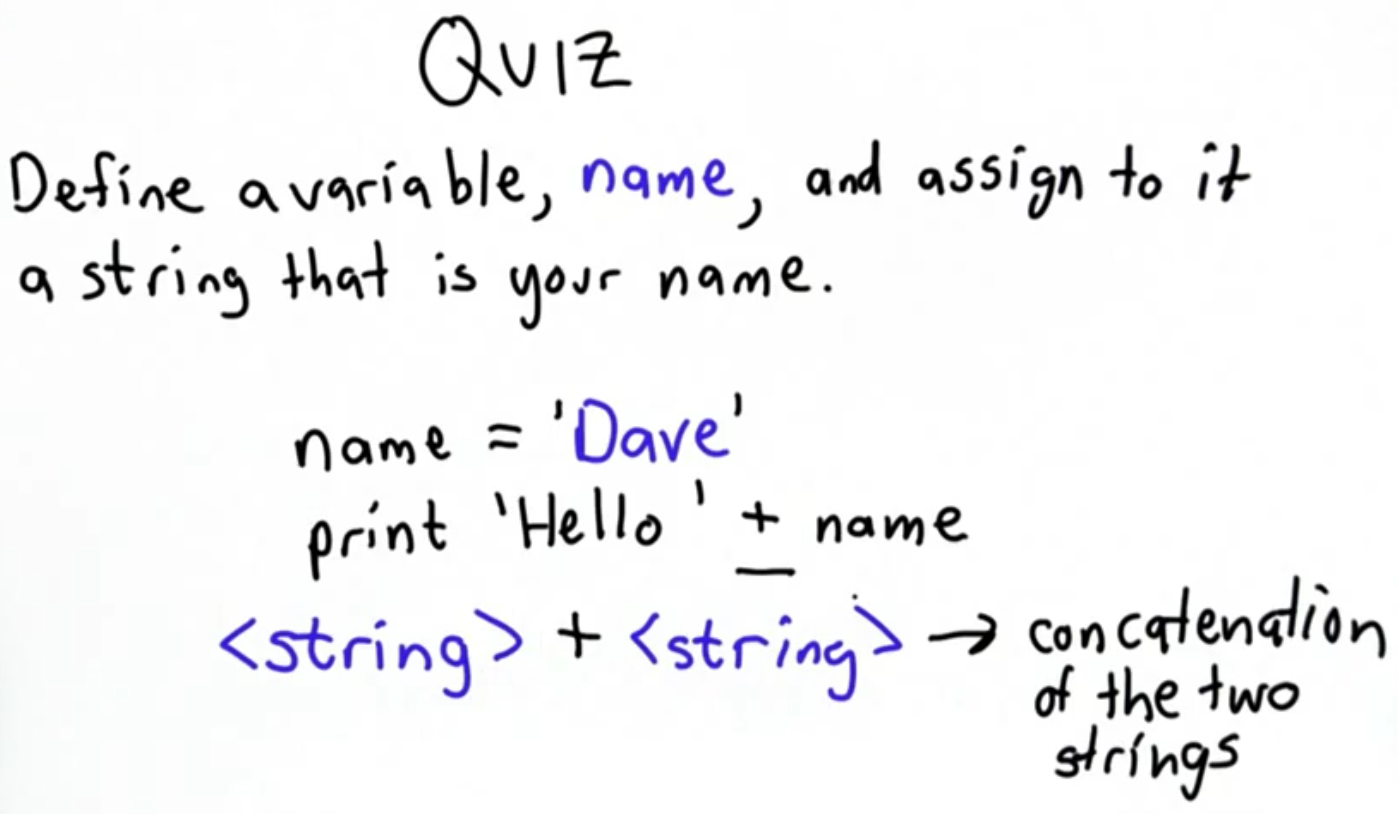 QUIZ
Define a variable, name, and assign to it
a string that is your name.
name = 'Dave'
print 'Hello ' + name
<string> + <string> → concatenation
of the two
strings